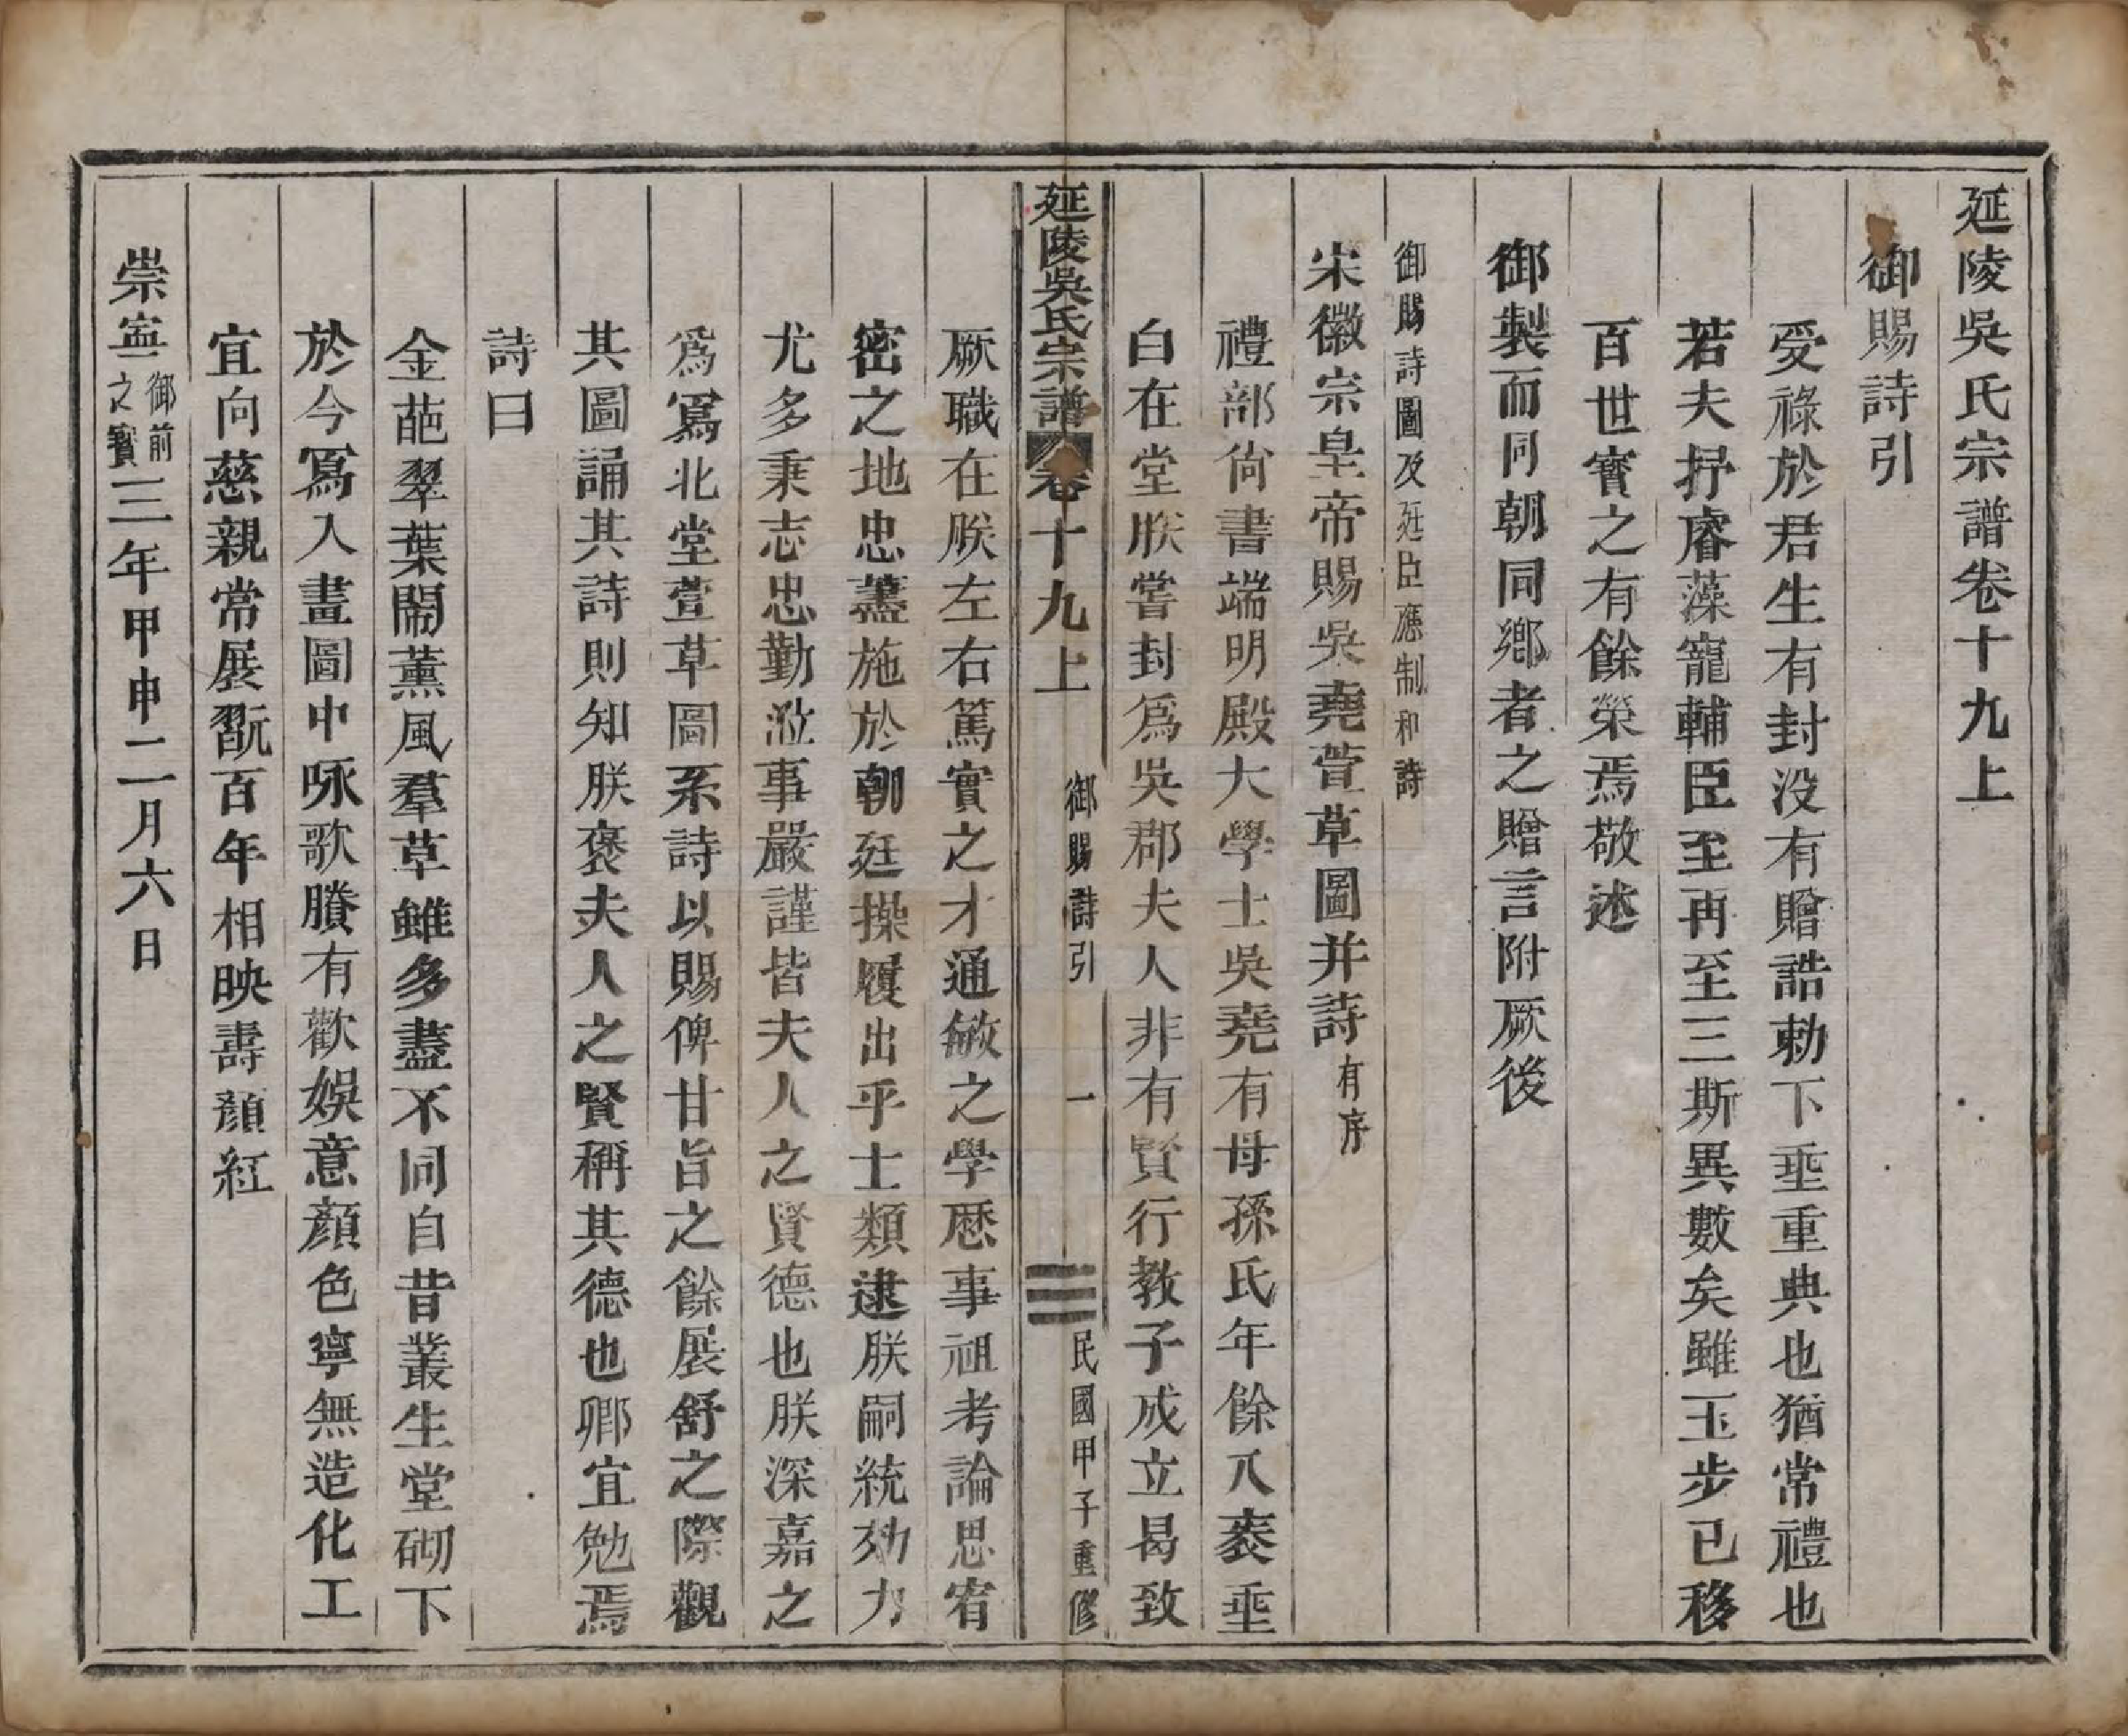 延陵吳氏宗譜卷十九上
御賜詩引
受祿於君生有封没有贈誥勅下垂重典也猶常禮也
若夫抒睿藻寵輔臣至再至三斯異數矣雖玉步已移
百世寳之有餘榮焉敬述
御製而同朝同鄉者之贈言附厥後
御賜詩圖及廷臣應制和詩
宋徽宗皇帝賜吳堯萱草圖并詩有序
禮部尙書端明殿大學士吳堯有母孫氏年餘八袠垂
白在堂朕嘗封爲吳郡夫人非有賢行教子成立曷致
延陵吳氏宗譜 卷十九上 御賜詩引 一 民國甲子重修
厥職在朕左右篤實之才通敏之學歷事祖考論思宥
密之地忠藎施於朝廷操履出乎士類逮朕嗣統効力
尤多秉志忠勤涖事嚴謹皆夫人之賢德也朕深嘉之
爲寫北堂萱草圖系詩以賜俾甘旨之餘展舒之際觀
其圖誦其詩則知朕褒夫人之賢稱其德也卿宜勉焉
詩曰
金葩翠葉鬧薰風羣草雖多盡不同自昔叢生堂砌下
於今寫入畫圖中咏歌賸有歡娛意顏色寧無造化工
宜向慈親常展翫百年相映壽顏紅
崇寧御前之寳三年甲申二月六日